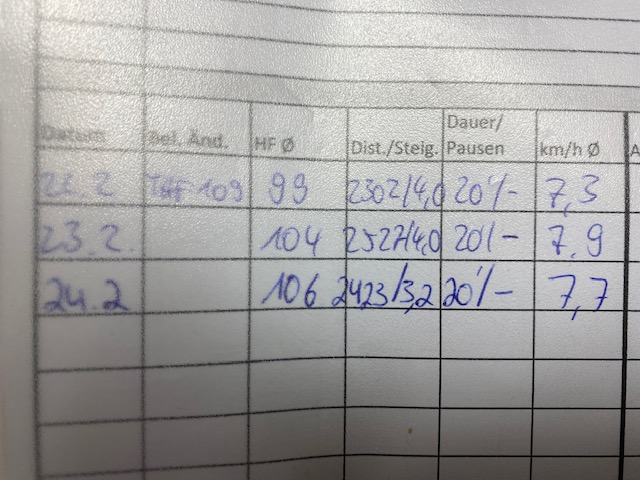 Datum Bel. Änd. HF Ø Dist./Steig. Dauer/ Pausen km/h Ø A
22.2 THF 109 99 2302/4,0 20'/- 7,3
23.2. 104 2527/4,0 20'/- 7,9
24.2 106 2423/3,2 20'/- 7,7